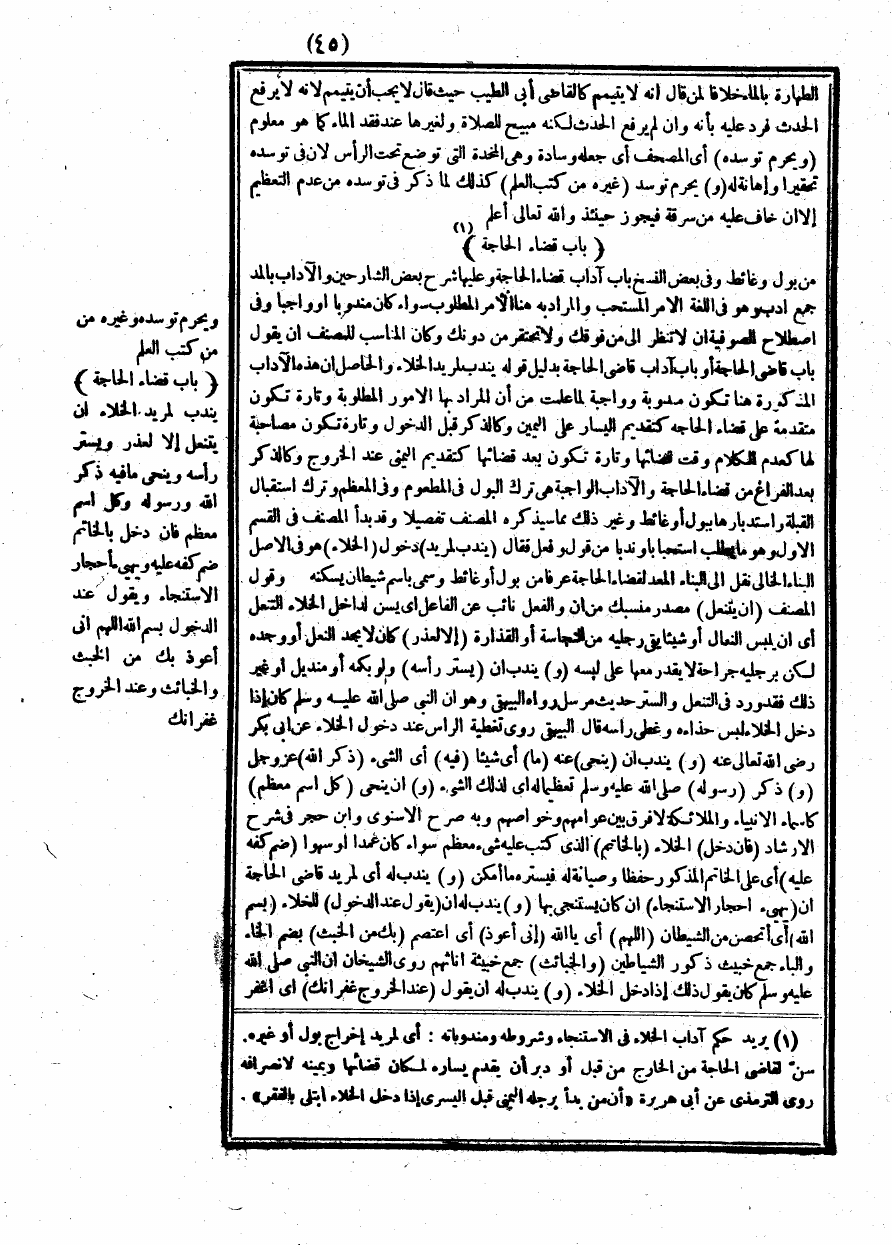 (٤٥)
الطهارة بالماء خلافا لمن قال انه لا يتيمم كالقاضى أبى الطيب حيث قال لا يجب أن يتيمم لانه لا يرفع
الحدث فرد عليه بأنه وان لم يرفع الحدث لكنه مبيح للصلاة ولغيرها عند فقد الماء كما هو معلوم
(ويحرم توسده) أى المصحف أى جعله وسادة وهى المخدة التى توضع تحت الرأس لان فى توسده
تحقيرا وإهانة له (و) يحرم توسد (غيره من كتب العلم) كذلك لما ذكر فى توسده من عدم التعظيم
إلا ان خاف عليه من سرقة فيجوز حينئذ والله تعالى أعلم
﴿ باب قضاء الحاجة ﴾ (١)
من بول وغائط وفى بعض النسخ باب آداب قضاء الحاجة وعليها شرح بعض الشارحين والآداب بالمد
جمع ادب وهو فى اللغة الامر المستحب والمراد به هنا الأمر المطلوب سواء كان مندوبا او واجبا وفى
اصطلاح الصوفية ان لا تنظر الى من فوقك ولا تحتقر من دونك وكان المناسب للمصنف ان يقول
باب قاضى الحاجة أو باب آداب قاضى الحاجة بدليل قوله يندب لمريد الخلاء والحاصل ان هذه الآداب
المذكورة هنا تكون مندوبة وواجبة لما علمت من أن المراد بها الامور المطلوبة وتارة تكون
متقدمة على قضاء الحاجه كتقديم اليسار على اليمين وكالذكر قبل الدخول وتارة تكون مصاحبة
لها كعدم الكلام وقت قضائها وتارة تكون بعد قضائها كتقديم اليمنى عند الخروج وكالذكر
بعد الفراغ من قضاء الحاجة والآداب الواجبة هى ترك البول فى المطعوم وفى المعظم وترك استقبال
القبلة واستدبارها ببول أو غائط وغير ذلك مما سيذكره المصنف تفصيلا وقد بدأ المصنف فى القسم
الاول وهو ما يطلب استحبابا وندبا من قول وفعل فقال (يندب لمريد) دخول (الخلاء) هو فى الاصل
البناء الخالى نقل الى البناء المعد لقضاء الحاجة عرفا من بول أو غائط وسمى باسم شيطان يسكنه وقول
المصنف (ان يتنعل) مصدر منسبك من ان والفعل نائب عن الفاعل اى يسن لداخل الخلاء التنعل
أى ان يلبس النعال أو شيئا يقى رجليه من النجاسة أو القذارة (إلا لعذر) كان لا يجد النعل أو وجده
لكن برجليه جراحة لا يقدر معها على لبسه (و) يندب ان (يستر رأسه) ولو بكمه أو منديل او غير
ذلك فقد ورد فى التنعل والستر حديث مرسل رواه البيهقى وهو ان النبى صلى الله عليه وسلم كان إذا
دخل الخلاء لبس حذاءه وغطى راسه قال البيهقى روى تغطية الراس عند دخول الخلاء عن ابى بكر
رضى الله تعالى عنه (و) يندب ان (ينحى) عنه (ما) أى شيئا (فيه) أى الشىء (ذكر الله) عز وجل
(و) ذكر (رسوله) صلى الله عليه وسلم تعظيما له اى لذلك الشىء (و) ان ينحى (كل اسم معظم)
كاسماء الانبياء والملائكة لا فرق بين عوامهم وخواصهم وبه صرح الاسنوى وابن حجر فى شرح
الارشاد (فان دخل) الخلاء (بالخاتم) الذى كتب عليه شىء معظم سواء كان عمدا او سهوا (ضم كفه
عليه) أى على الخاتم المذكور حفظا وصيانة له فيستره ما أمكن (و) يندب له أى لمريد قاضى الحاجة
ان (يهيىء احجار الاستنجاء) ان كان يستنجى بها (و) يندب له ان (يقول عند الدخول) للخلاء (بسم
الله) أى أتحصن من الشيطان (اللهم) أى يا الله (إنى أعوذ) أى اعتصم (بك من الخبث) بضم الخاء
والباء جمع خبيث ذكور الشياطين (والخبائث) جمع خبيثة اناثهم روى الشيخان ان النبى صلى الله
عليه وسلم كان يقول ذلك إذا دخل الخلاء (و) يندب له ان يقول (عند الخروج غفرانك) اى اغفر
ويحرم توسده وغيره من
من كتب العلم
﴿ باب قضاء الحاجة ﴾
يندب لمريد الخلاء ان
يتنعل إلا لعذر ويستر
رأسه وينحى ما فيه ذكر
الله ورسوله وكل اسم
معظم فان دخل بالخاتم
ضم كفه عليه ويهىء أحجار
الاستنجاء ويقول عند
الدخول بسم الله اللهم انى
أعوذ بك من الخبث
والخبائث وعند الخروج
غفرانك
(١) يريد حكم آداب الخلاء فى الاستنجاء وشروطه ومندوباته : أى لمريد إخراج بول أو غيره.
سن لقاضى الحاجة من الخارج من قبل أو دبر أن يقدم يساره لمكان قضائها ويمينه لانصرافه
روى الترمذى عن أبى هريرة «أن من بدأ برجله اليمنى قبل اليسرى إذا دخل الخلاء ابتلى بالفقر» .